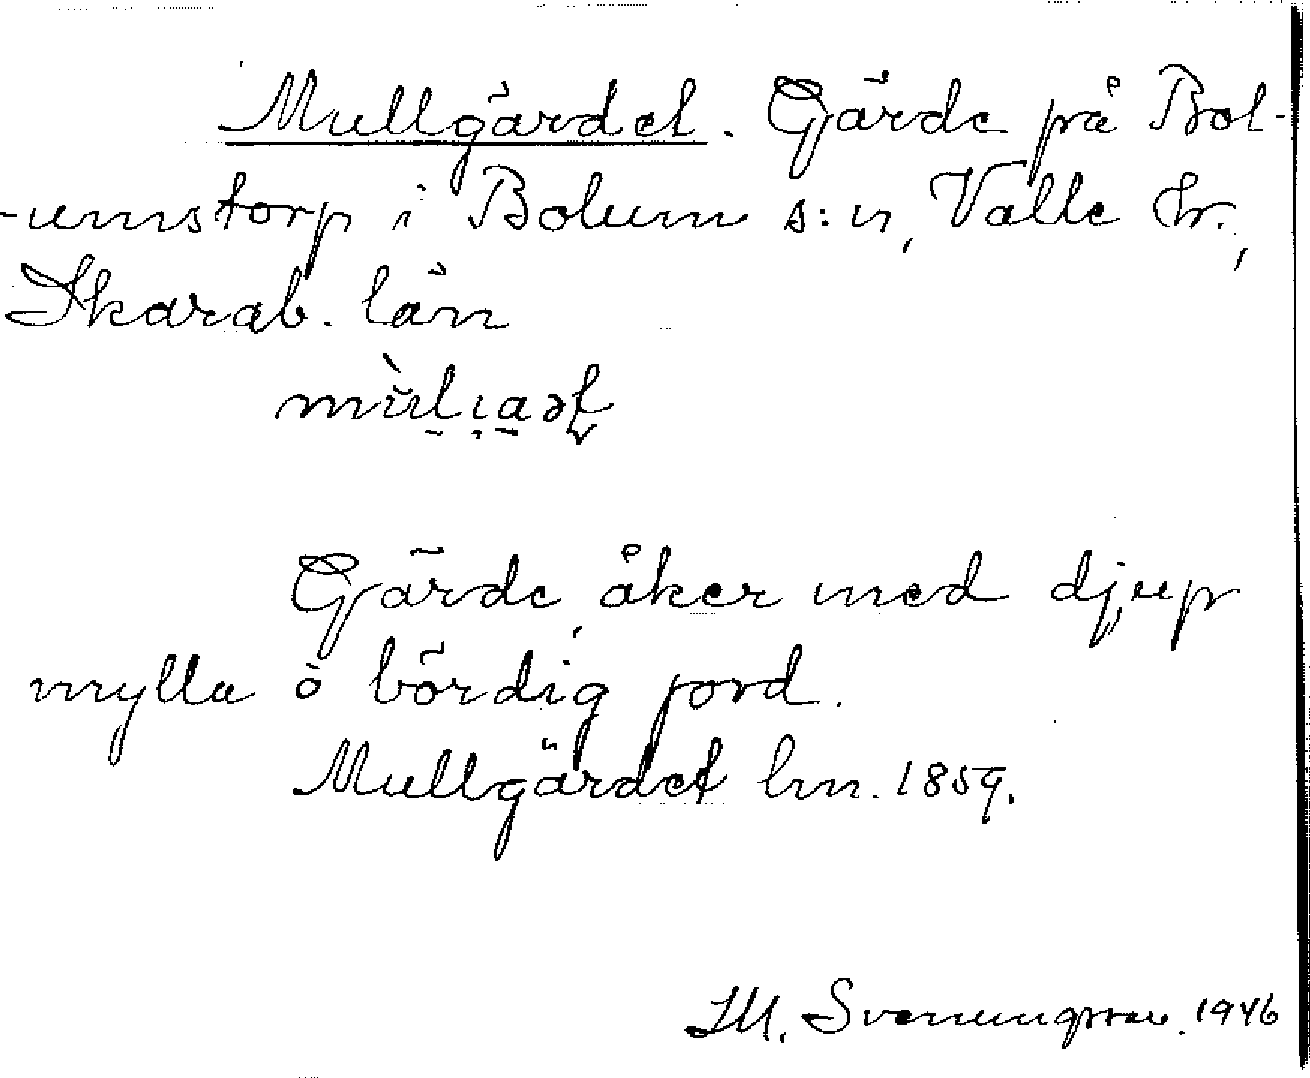 Mullgärdet. Gärde på Bol-
-umstorp i Bolum s:n, Valle hr.,
Skarab. län

Gärde, åker med djup
mylla o bördig jord.
Mullgärdet hm. 1859.
1946